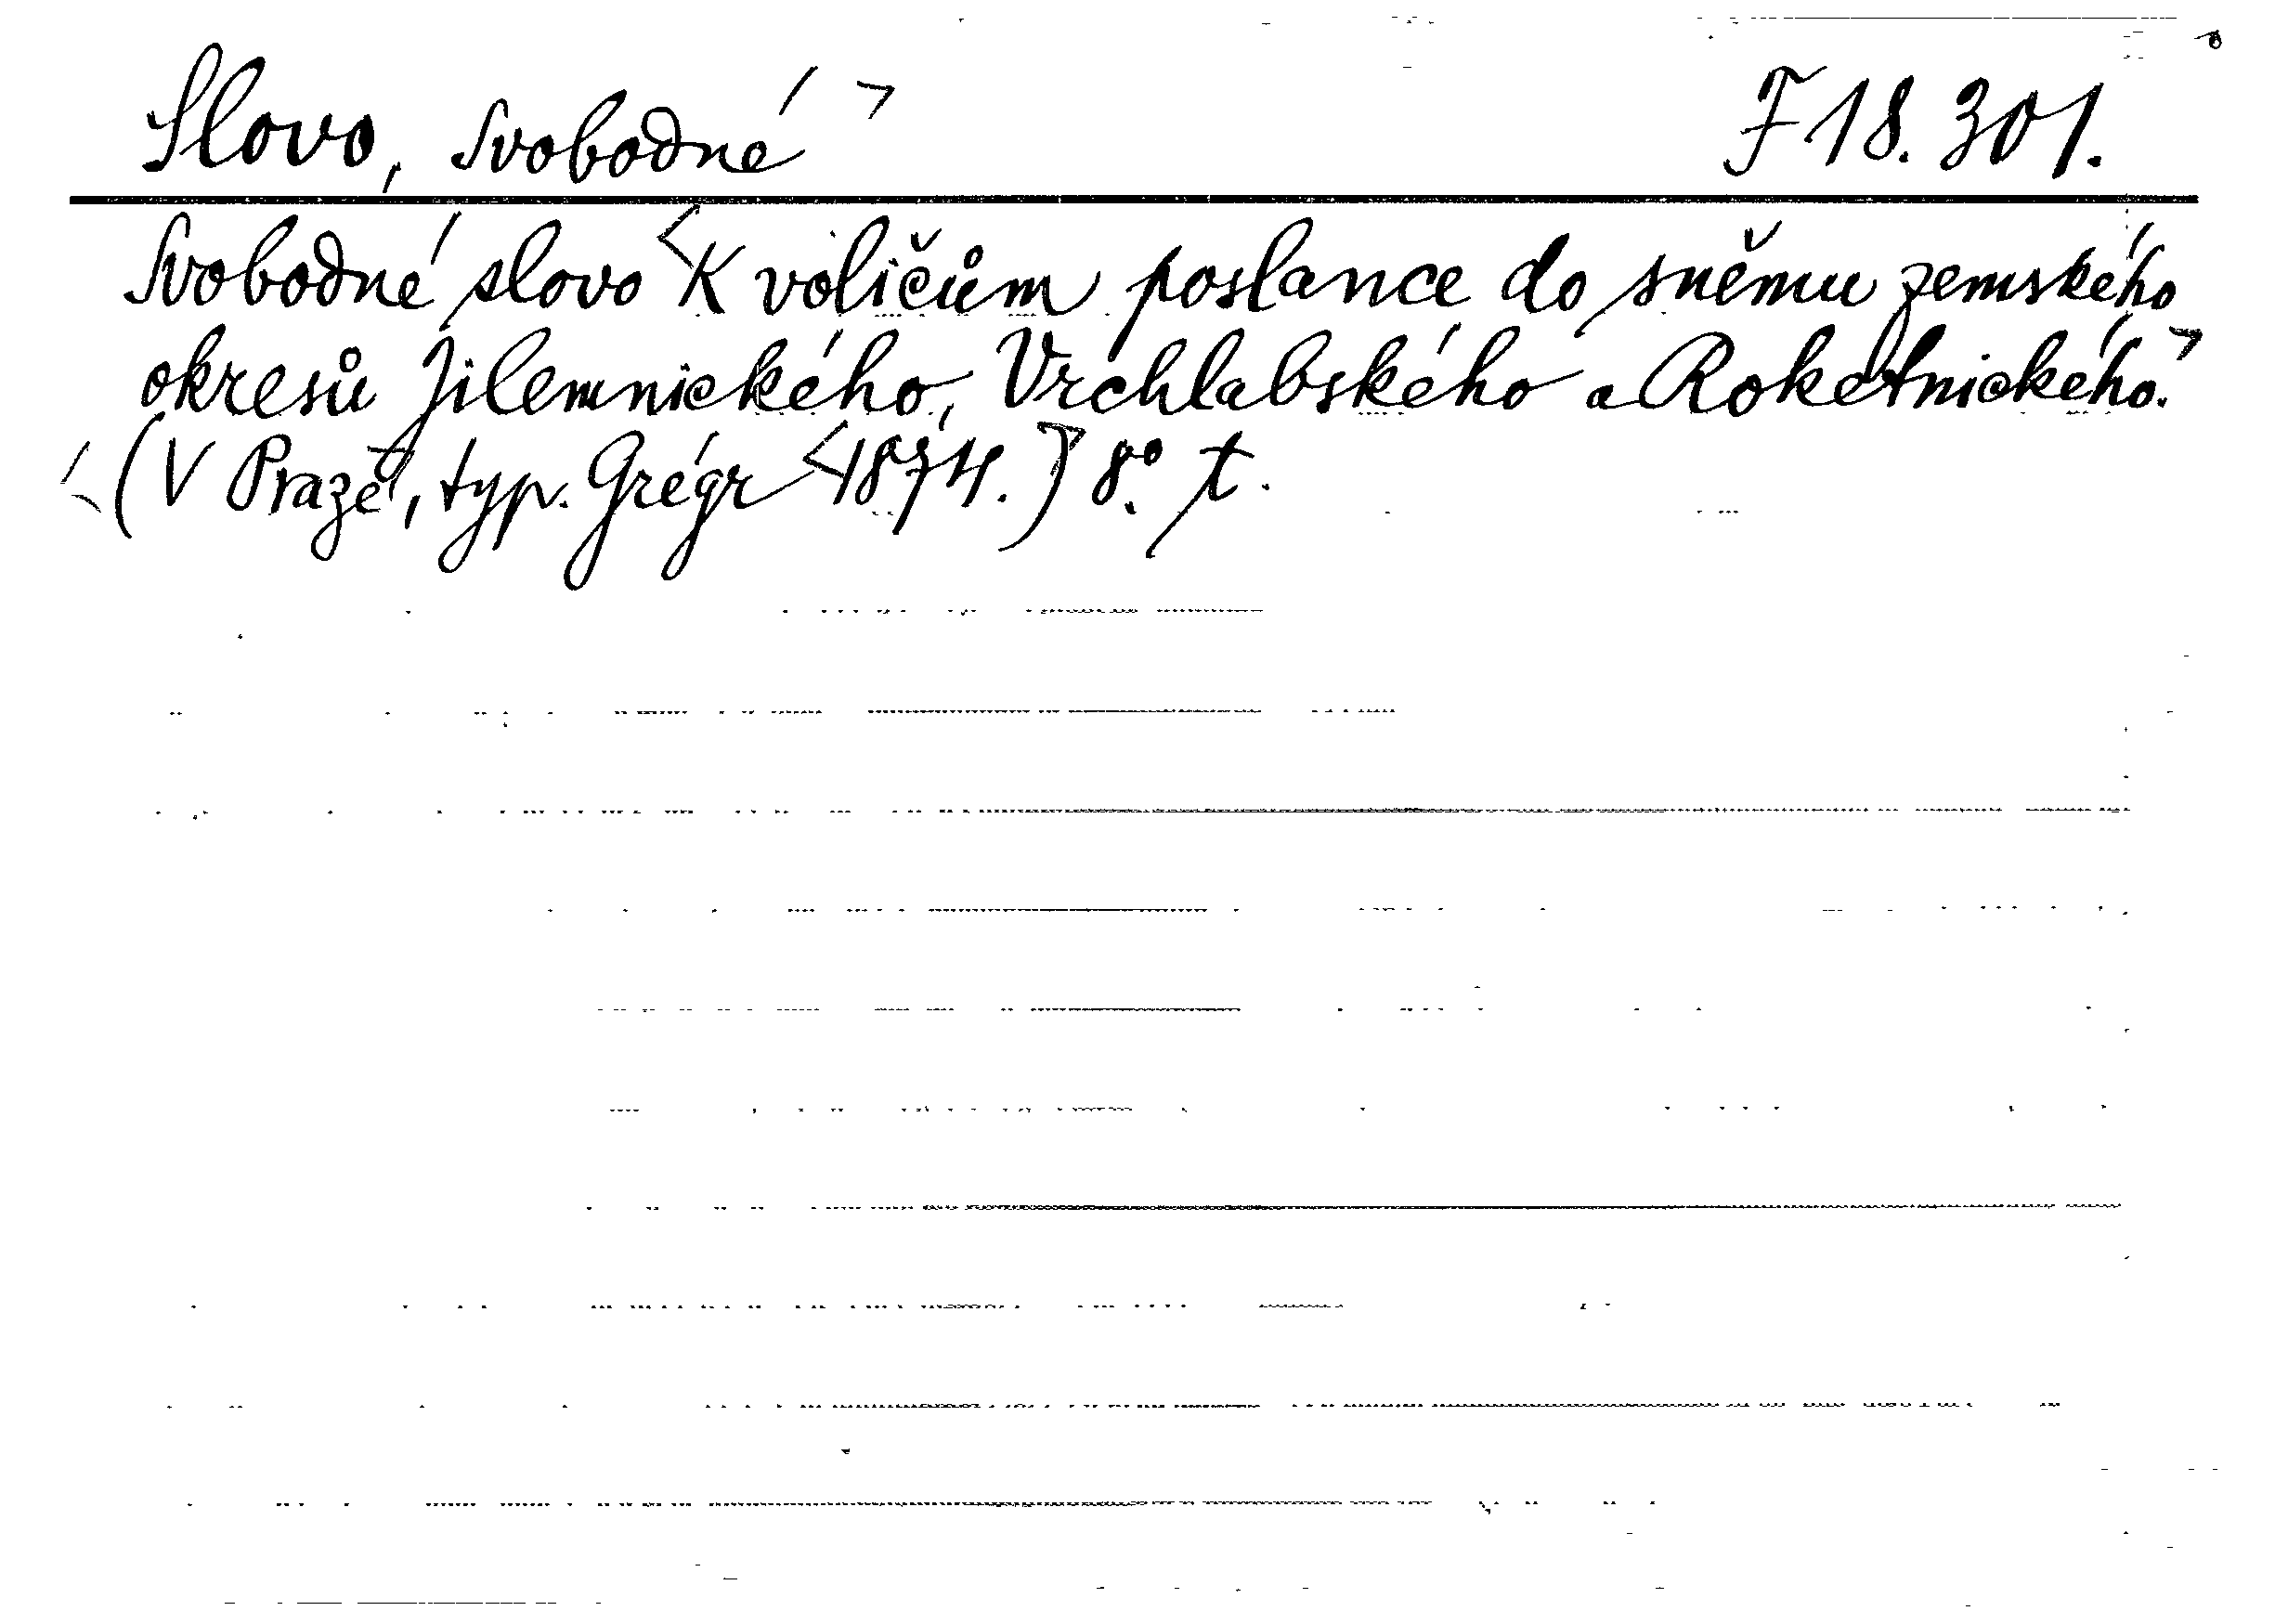 Slovo, svobodné > F 18. 301.
Svobodné slovo <K voličům poslance do sněmu zemského
okresů Jilemnického, Vrchlabského a Roketnického.>
<(V Praze, typ. Grégr <1874.>) 8º. t.